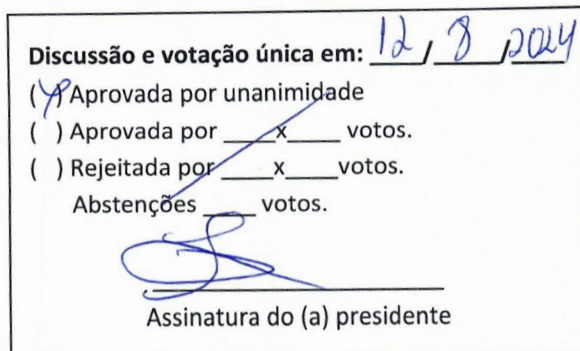 Discussão e votação única em: 12 / 8 / 2024
(X) Aprovada por unanimidade
( ) Aprovada por ____x____ votos.
( ) Rejeitada por ____x____votos.
Abstenções ____ votos.
Assinatura do (a) presidente